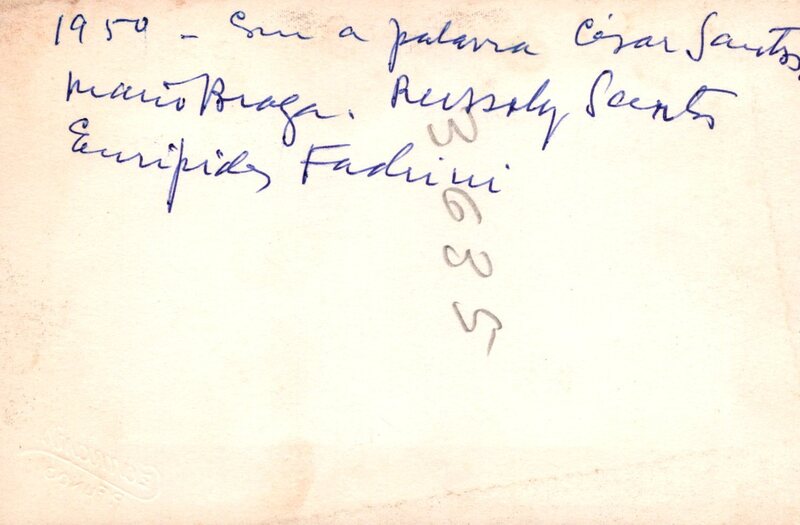 1950 - Em a palavra César Santos,
Mario Braga. Russoly Santos
Euripides Fachini
3635